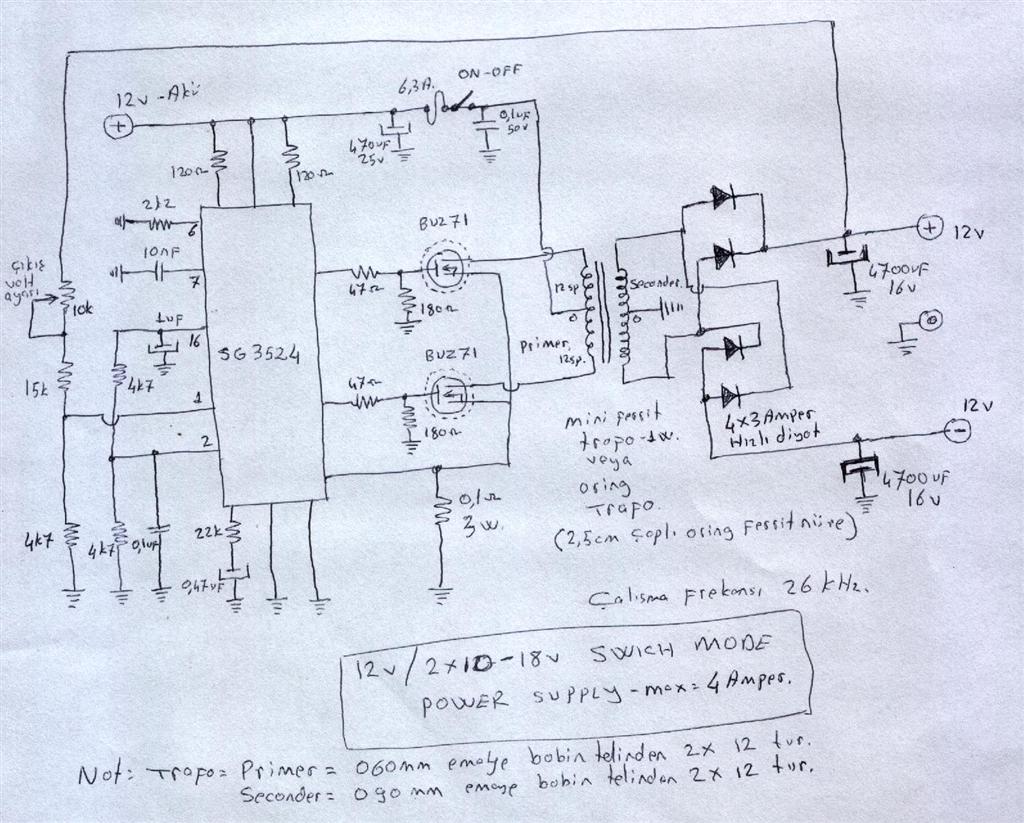 12v-Akü
6,3A.
ON-OFF
470uF
25v
0,1uF
50v
120Ω
120Ω
2k2
6
10nF
7
BUZ71
çıkış
volt
ayarı
10k
1uF
16
SG3524
47Ω
180Ω
12sp.
0
Primer,
12sp.
Seconder.
0
+
12v
4700uF
16v
0
15k
4k7
1
2
47Ω
BUZ71
180Ω
4x3 Amper
Hızlı diyot
12v
-
4700uF
16v
mini ferrit
trafo-1w.
veya
oring
Trafo.
(2,5cm çaplı oring ferrit nüve)
4k7
4k7
0,1uF
22k
0,47uF
0,1Ω
3w.
Çalısma Frekansı 26 kHz.
12v/2x10-18v SWICH MODE
POWER SUPPLY-max=4Amper.
Not: Trafo= Primer= 060mm emaye bobin telinden 2x 12 tur.
Seconder= 090mm emaye bobin telinden 2x 12 tur.